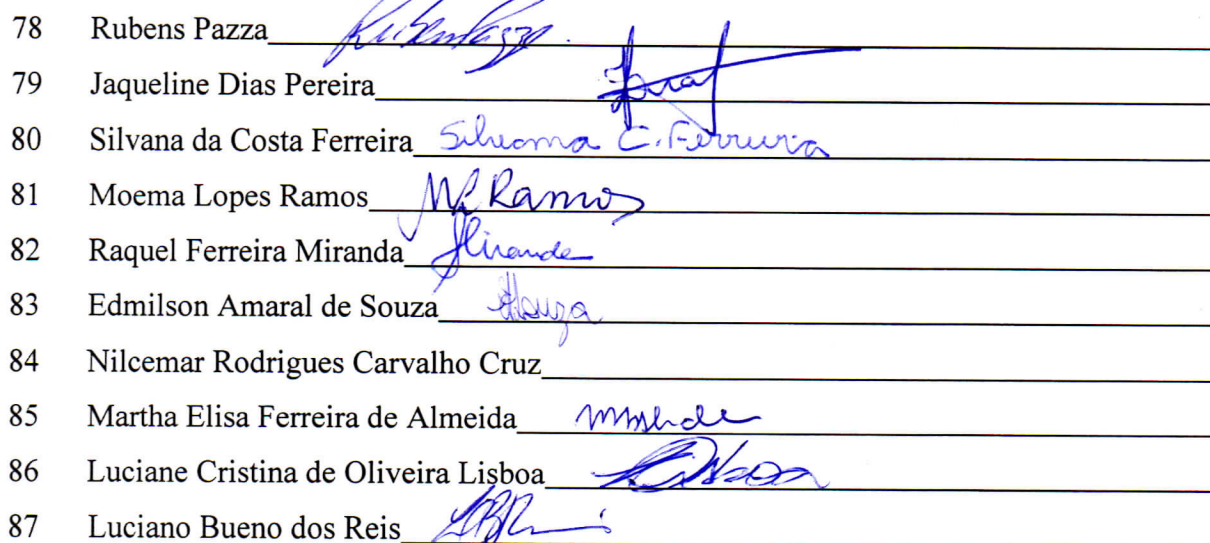 78 Rubens Pazza Rubens Pazza.
79 Jaqueline Dias Pereira
80 Silvana da Costa Ferreira Silvana C. Ferreira
81 Moema Lopes Ramos ML Ramos
82 Raquel Ferreira Miranda Miranda
83 Edmilson Amaral de Souza Souza
84 Nilcemar Rodrigues Carvalho Cruz
85 Martha Elisa Ferreira de Almeida
86 Luciane Cristina de Oliveira Lisboa
87 Luciano Bueno dos Reis